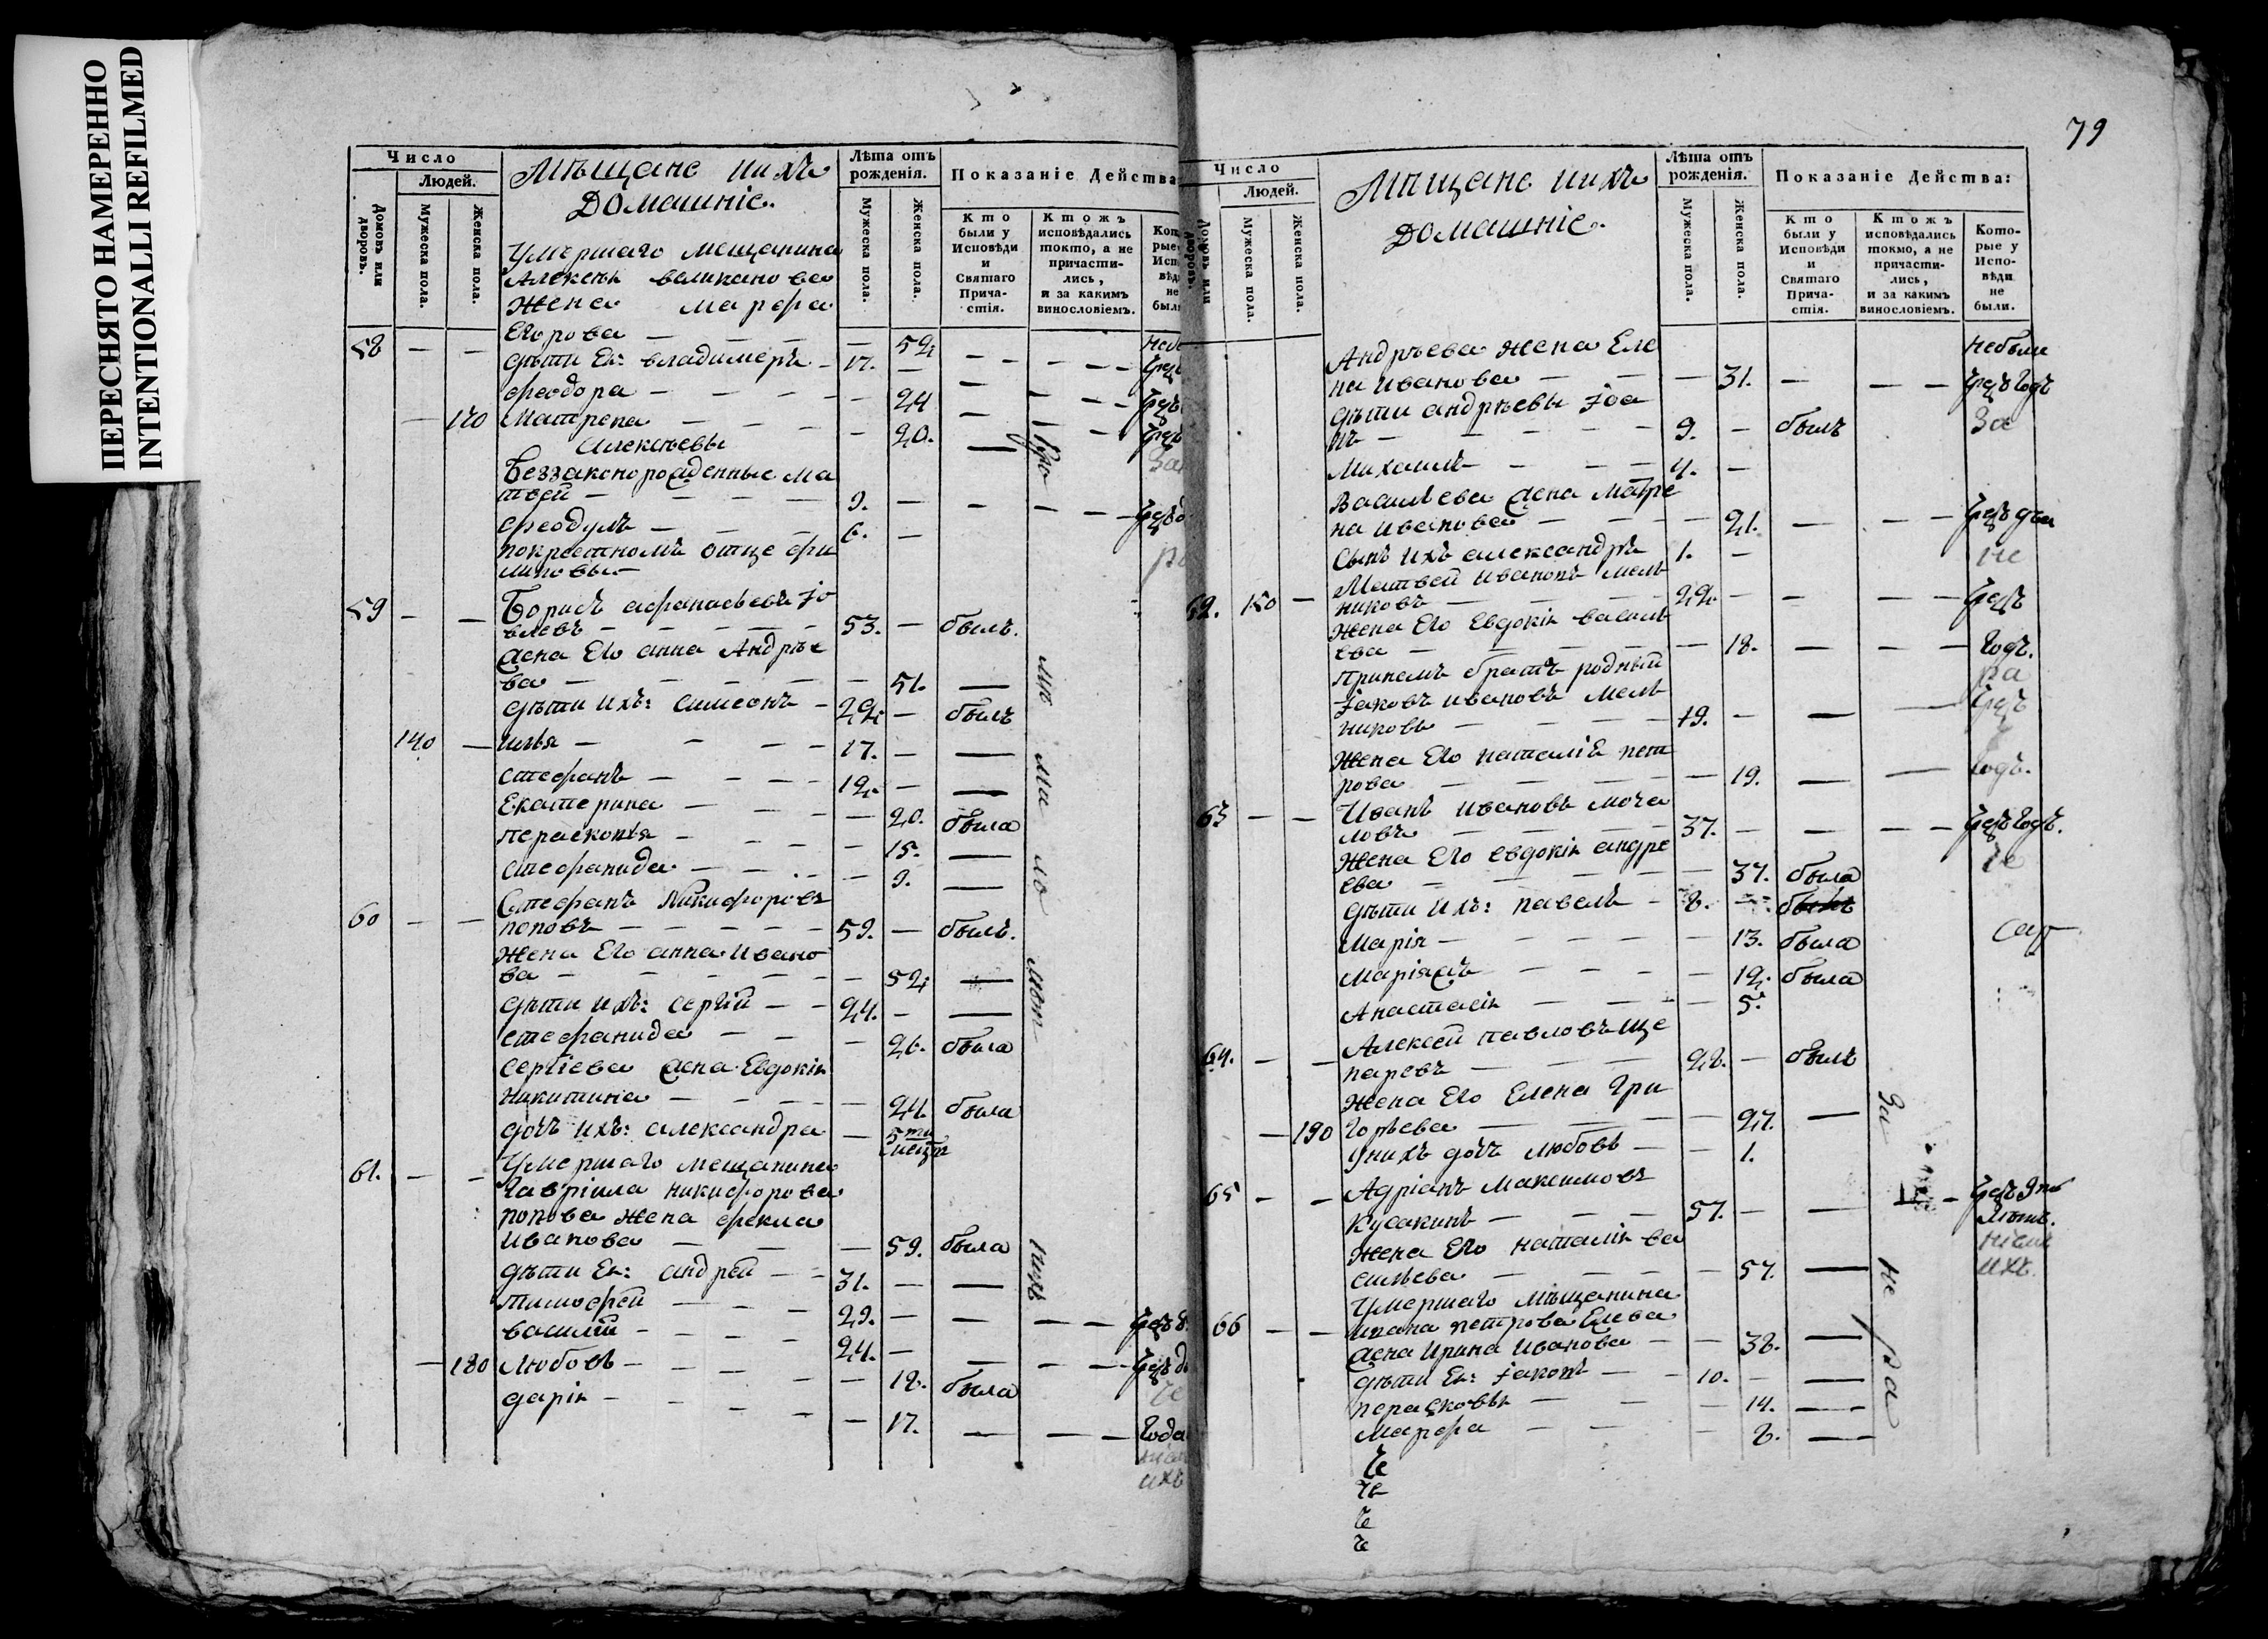 ПЕРЕСНЯТО НАМЕРЕННО
INTENTIONALLI REFILMED
Число
Людей.
Домовъ или дворовъ.
Мужеска пола.
Женска пола.
Мѣщане и ихъ
Домашніе.
Лѣта отъ рожденія.
Мужеска пола.
Женска пола.
Показаніе Действа
Кто были у Исповѣди и Святаго Причастія.
Ктожъ исповѣдались токмо, а не причастились, и за какимъ винословіемъ.
Умершаго мещанина
Алексѣя великанова
Жена марфа
58 — — Егорова — — 52
дѣти Ея: владимеръ — 17. —
феодора — — 24
— 170 Матрена — — 20.
Алексѣевы
Беззаконорожденные Ма
твей — 9. —
феодулъ — 6. —
покрестномъ отце фи
липовы
59 — — Борисъ афанасьевъ Іо
влевъ — 53. — былъ.
жена Его анна Андрѣе
ва — — 51. —
дѣти ихъ: симеонъ — 22 — былъ
140 — илья — 17. — —
стефанъ — 12. — —
Екатерина — — 20. была
парасковія — — 15. —
стефанида — — 9. —
Стефанъ Никифоровъ
60 — — поповъ — 59. — былъ.
Жена Его анна Ивано
ва — — 52 —
дѣти ихъ: сергій — 24. — —
стефанида — — 26. была
сергіева жена Евдокія
Никитина — — 24 была
дочь ихъ: александра — 5ти
61. — — Умершаго мещанина
Гавріила никифорова
попова жена фекла
Иванова — — 59. была
дѣти Ея: андрей — 31. — —
тимофей — 29. — —
василій — 24. — —
— 180 Любовь — — 18. была
дарія — — 17. —
79
Число
Людей.
Домовъ или дворовъ.
Мужеска пола.
Женска пола.
Мѣщане и ихъ
Домашніе.
Лѣта отъ рожденія.
Мужеска пола.
Женска пола.
Показаніе Действа:
Кто были у Исповѣди и Святаго Причастія.
Ктожъ исповѣдались токмо, а не причастились, и за какимъ винословіемъ.
Которые у Исповѣди не были.
Андрѣева жена Еле
на иванова — — 31. — — небыли
дѣти андрѣевы Іоа
нъ — 9. — былъ
Михаилъ — 4. —
Васильева жена Матре
на иванова — — 21. — —
Сынъ ихъ александръ 1. —
Матвей ивановъ мель
62. 150 — никовъ — 22. — —
Жена Его Евдокія василь
ева — — 18. — — годъ.
принемъ братъ родный
Іаковъ ивановъ мель
никовъ — 19. — — —
Жена Его наталія пет
рова — — 19. — — годъ.
63 — — Иванъ ивановъ моча
ловъ — 37. — — —
Жена Его евдокія андре
ева — — 37. была
дѣти ихъ: павелъ — 8. — былъ
Марія — — 13. была
Маріяжъ — — 12. была
Анастасія — — 5.
64. — — Алексей павловъ ще
паревъ — 28. — былъ
Жена Его Елена Гри
— 190 горьева — — 27. —
У нихъ дочь любовь — — 1.
65 — — Адріанъ Максимовъ
Кусакинъ — 57. — —
Жена Его наталія ва
сильева — — 57. —
Умершаго мѣщанина
66 — — ивана петрова Елева
жена Ирина Иванова — — 38. —
дѣти Ея: Іаковъ — 10. — —
парасковья — — 14. —
Марфа — — 8. —